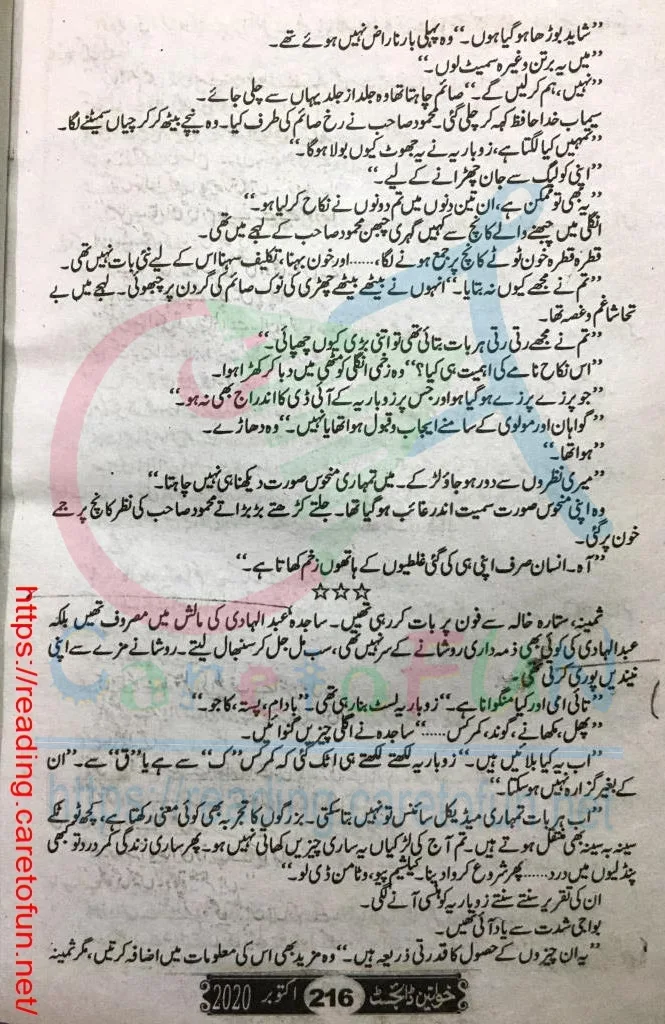 ”شاید بوڑھا ہوگیا ہوں۔“ وہ پہلی بار ناراض نہیں ہوئے تھے۔
”میں یہ برتن وغیرہ سمیٹ لوں۔“
”نہیں، ہم کرلیں گے۔“ صائم چاہتا تھا وہ جلد از جلد یہاں سے چلی جائے۔
سیماب خدا حافظ کہہ کر چلی گئی۔ محمود صاحب نے رخ صائم کی طرف کیا۔ وہ نیچے بیٹھ کر کرچیاں سمیٹنے لگا۔
”تمہیں کیا لگتا ہے، زوباریہ نے یہ جھوٹ کیوں بولا ہوگا۔“
”اپنی کولیگ سے جان چھڑانے کے لیے۔“
”یہ بھی تو ممکن ہے، ان تین دنوں میں تم دونوں نے نکاح کرلیا ہو۔“
انگلی میں چبھنے والے کانچ سے کہیں گہری چبھن محمود صاحب کے لہجے میں تھی۔
قطرہ قطرہ خون ٹوٹے کانچ پر جمع ہونے لگا،...... اور خون بہنا، تکلیف سہنا اس کے لیے نئی بات نہیں تھی۔
”تم نے مجھے کیوں نہ بتایا۔“ انہوں نے بیٹھے بیٹھے چھڑی کی نوک صائم کی گردن پر چبھوئی۔ لہجے میں بے
تحاشا غم و غصہ تھا۔
”تم نے مجھے رتی رتی ہر بات بتائی تھی تو اتنی بڑی کیوں چھپائی۔“
”اس نکاح نامے کی اہمیت ہی کیا؟“ وہ زخمی انگلی کو مٹھی میں دبا کر کھڑا ہوا۔
”جو پرزے پرزے ہوگیا ہو اور جس پر زوباریہ کے آئی ڈی کا اندراج بھی نہ ہو۔“
”گواہان اور مولوی کے سامنے ایجاب و قبول ہوا تھا یا نہیں۔“ وہ دھاڑے۔
”ہوا تھا۔“
”میری نظروں سے دور ہو جاؤ لڑکے۔ میں تمہاری منحوس صورت دیکھنا ہی نہیں چاہتا۔“
وہ اپنی منحوس صورت سمیت اندر غائب ہوگیا تھا۔ جلتے کڑھتے بڑبڑاتے محمود صاحب کی نظر کانچ پر جمے
خون پر گئی۔
”آہ۔ انسان صرف اپنی ہی کی گئی غلطیوں کے ہاتھوں زخم کھاتا ہے۔“
☆☆☆
ثمینہ، ستارہ خالہ سے فون پر بات کر رہی تھیں۔ ساجدہ عبدالہادی کی مالش میں مصروف تھیں بلکہ
عبدالہادی کی کوئی بھی ذمہ داری روشانے کے سر نہیں تھی، سب مل جل کر سنبھال لیتے۔ روشانے مزے سے اپنی
نیندیں پوری کرتی تھی۔
”تائی امی اور کیا منگوانا ہے۔“ زوباریہ لسٹ بنا رہی تھی۔ ”بادام، پستہ، کاجو۔“
”پھل، مکھانے، گوند، کمرکس......“ ساجدہ نے اگلی چیزیں گنوائیں۔
”اب یہ کیا بلائیں ہیں۔“ زوباریہ لکھتے لکھتے ہی اٹک گئی کہ کمرکس ”ک“ سے ہے یا ”ق“ سے۔ ”ان
کے بغیر گزارہ نہیں ہوسکتا۔“
”اب ہر بات تمہاری میڈیکل سائنس تو نہیں بتاسکتی۔ بزرگوں کا تجربہ بھی کوئی معنی رکھتا ہے، کچھ ٹوٹکے
سینہ بہ سینہ بھی منتقل ہوتے ہیں۔ تم آج کی لڑکیاں یہ ساری چیزیں کھاتی نہیں ہو۔ پھر ساری زندگی کمر درد تو کبھی
پنڈلیوں میں درد...... پھر شروع کروا دینا۔ کیلشیم پیو، وٹامن ڈی لو۔“
ان کی تقریر سنتے سنتے زوباریہ کو ہنسی آنے لگی۔
بواجی شدت سے یاد آئی تھیں۔
”یہ ان چیزوں کے حصول کا قدرتی ذریعہ ہیں۔“ وہ مزید بھی اس کی معلومات میں اضافہ کرتیں، مگر ثمینہ
خواتین ڈائجسٹ 216 اکتوبر 2020
https://reading.caretofun.net/
CaretoFUN
https://reading.caretofun.net